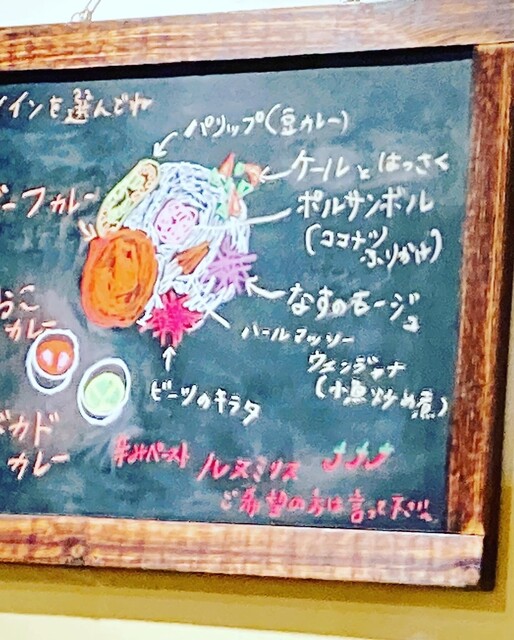 インを選んでね
パリップ(豆カレー)
ケールとはっさく
ーフカレー
ポルサンボル
(ココナツ
ふりかけ)
なすのモージュ
カレー
ハールマッソー
ウェンジャナ
(小魚炒め煮)
ビーツのキラタ
カド
カレー
辛みペースト ルヌミリス
ご希望の方は言って下さい